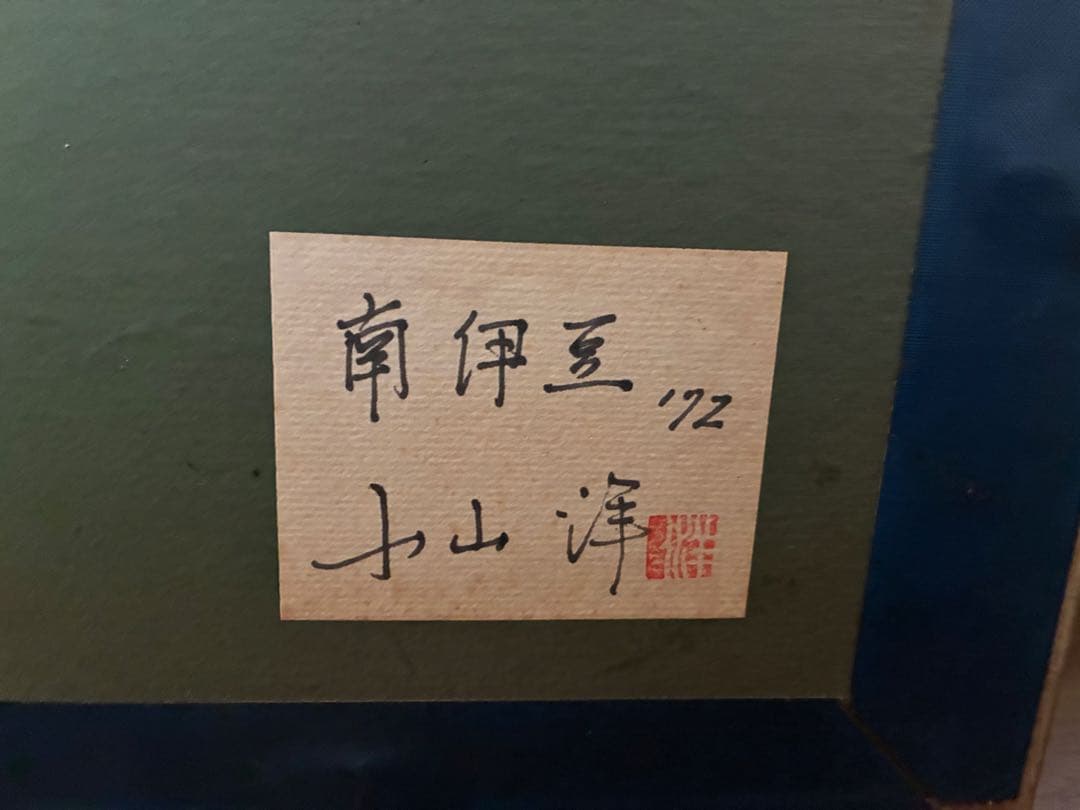 南伊豆 '72
小山 洋